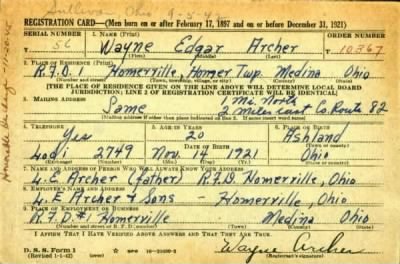 Sullivan Ohio
REGISTRATION CARD—(Men born on or after February 17, 1897 and on or before December 31, 1921)
SERIAL NUMBER 1. NAME (Print) ORDER NUMBER
Wayne Edgar Archer 10367
(First) (Middle) (Last)
2. PLACE OF RESIDENCE (Print)
R.F.D. Homerville, Homer Twp. Medina Ohio
(Number and street) (Town, township, village, or city) (County) (State)
[THE PLACE OF RESIDENCE GIVEN ON THE LINE ABOVE WILL DETERMINE LOCAL BOARD
JURISDICTION; LINE 2 OF REGISTRATION CERTIFICATE WILL BE IDENTICAL]
3. MAILING ADDRESS
Same 1 Mi. North
2 Miles East Co. Route 82
[Mailing address if other than place indicated on line 2. If same insert word same]
4. TELEPHONE 5. AGE IN YEARS 6. PLACE OF BIRTH
Yes 20 Ashland
DATE OF BIRTH
Lodi 2749 Nov. 14 1921 Ohio
(Exchange) (Number) (Mo.) (Day) (Yr.) (State or country)
7. NAME AND ADDRESS OF PERSON WHO WILL ALWAYS KNOW YOUR ADDRESS
L.E. Archer (Father) R.F.D. Homerville, Ohio
8. EMPLOYER'S NAME AND ADDRESS
L.E. Archer & Sons - Homerville, Ohio
9. PLACE OF EMPLOYMENT OR BUSINESS
R.F.D. #1 Homerville Medina Ohio
(Number and street or R. F. D. number) (Town) (County) (State)
I AFFIRM THAT I HAVE VERIFIED ABOVE ANSWERS AND THAT THEY ARE TRUE.
D. S. S. Form 1
(Revised 1-1-42) (over)
Wayne Archer
(Registrant's signature)